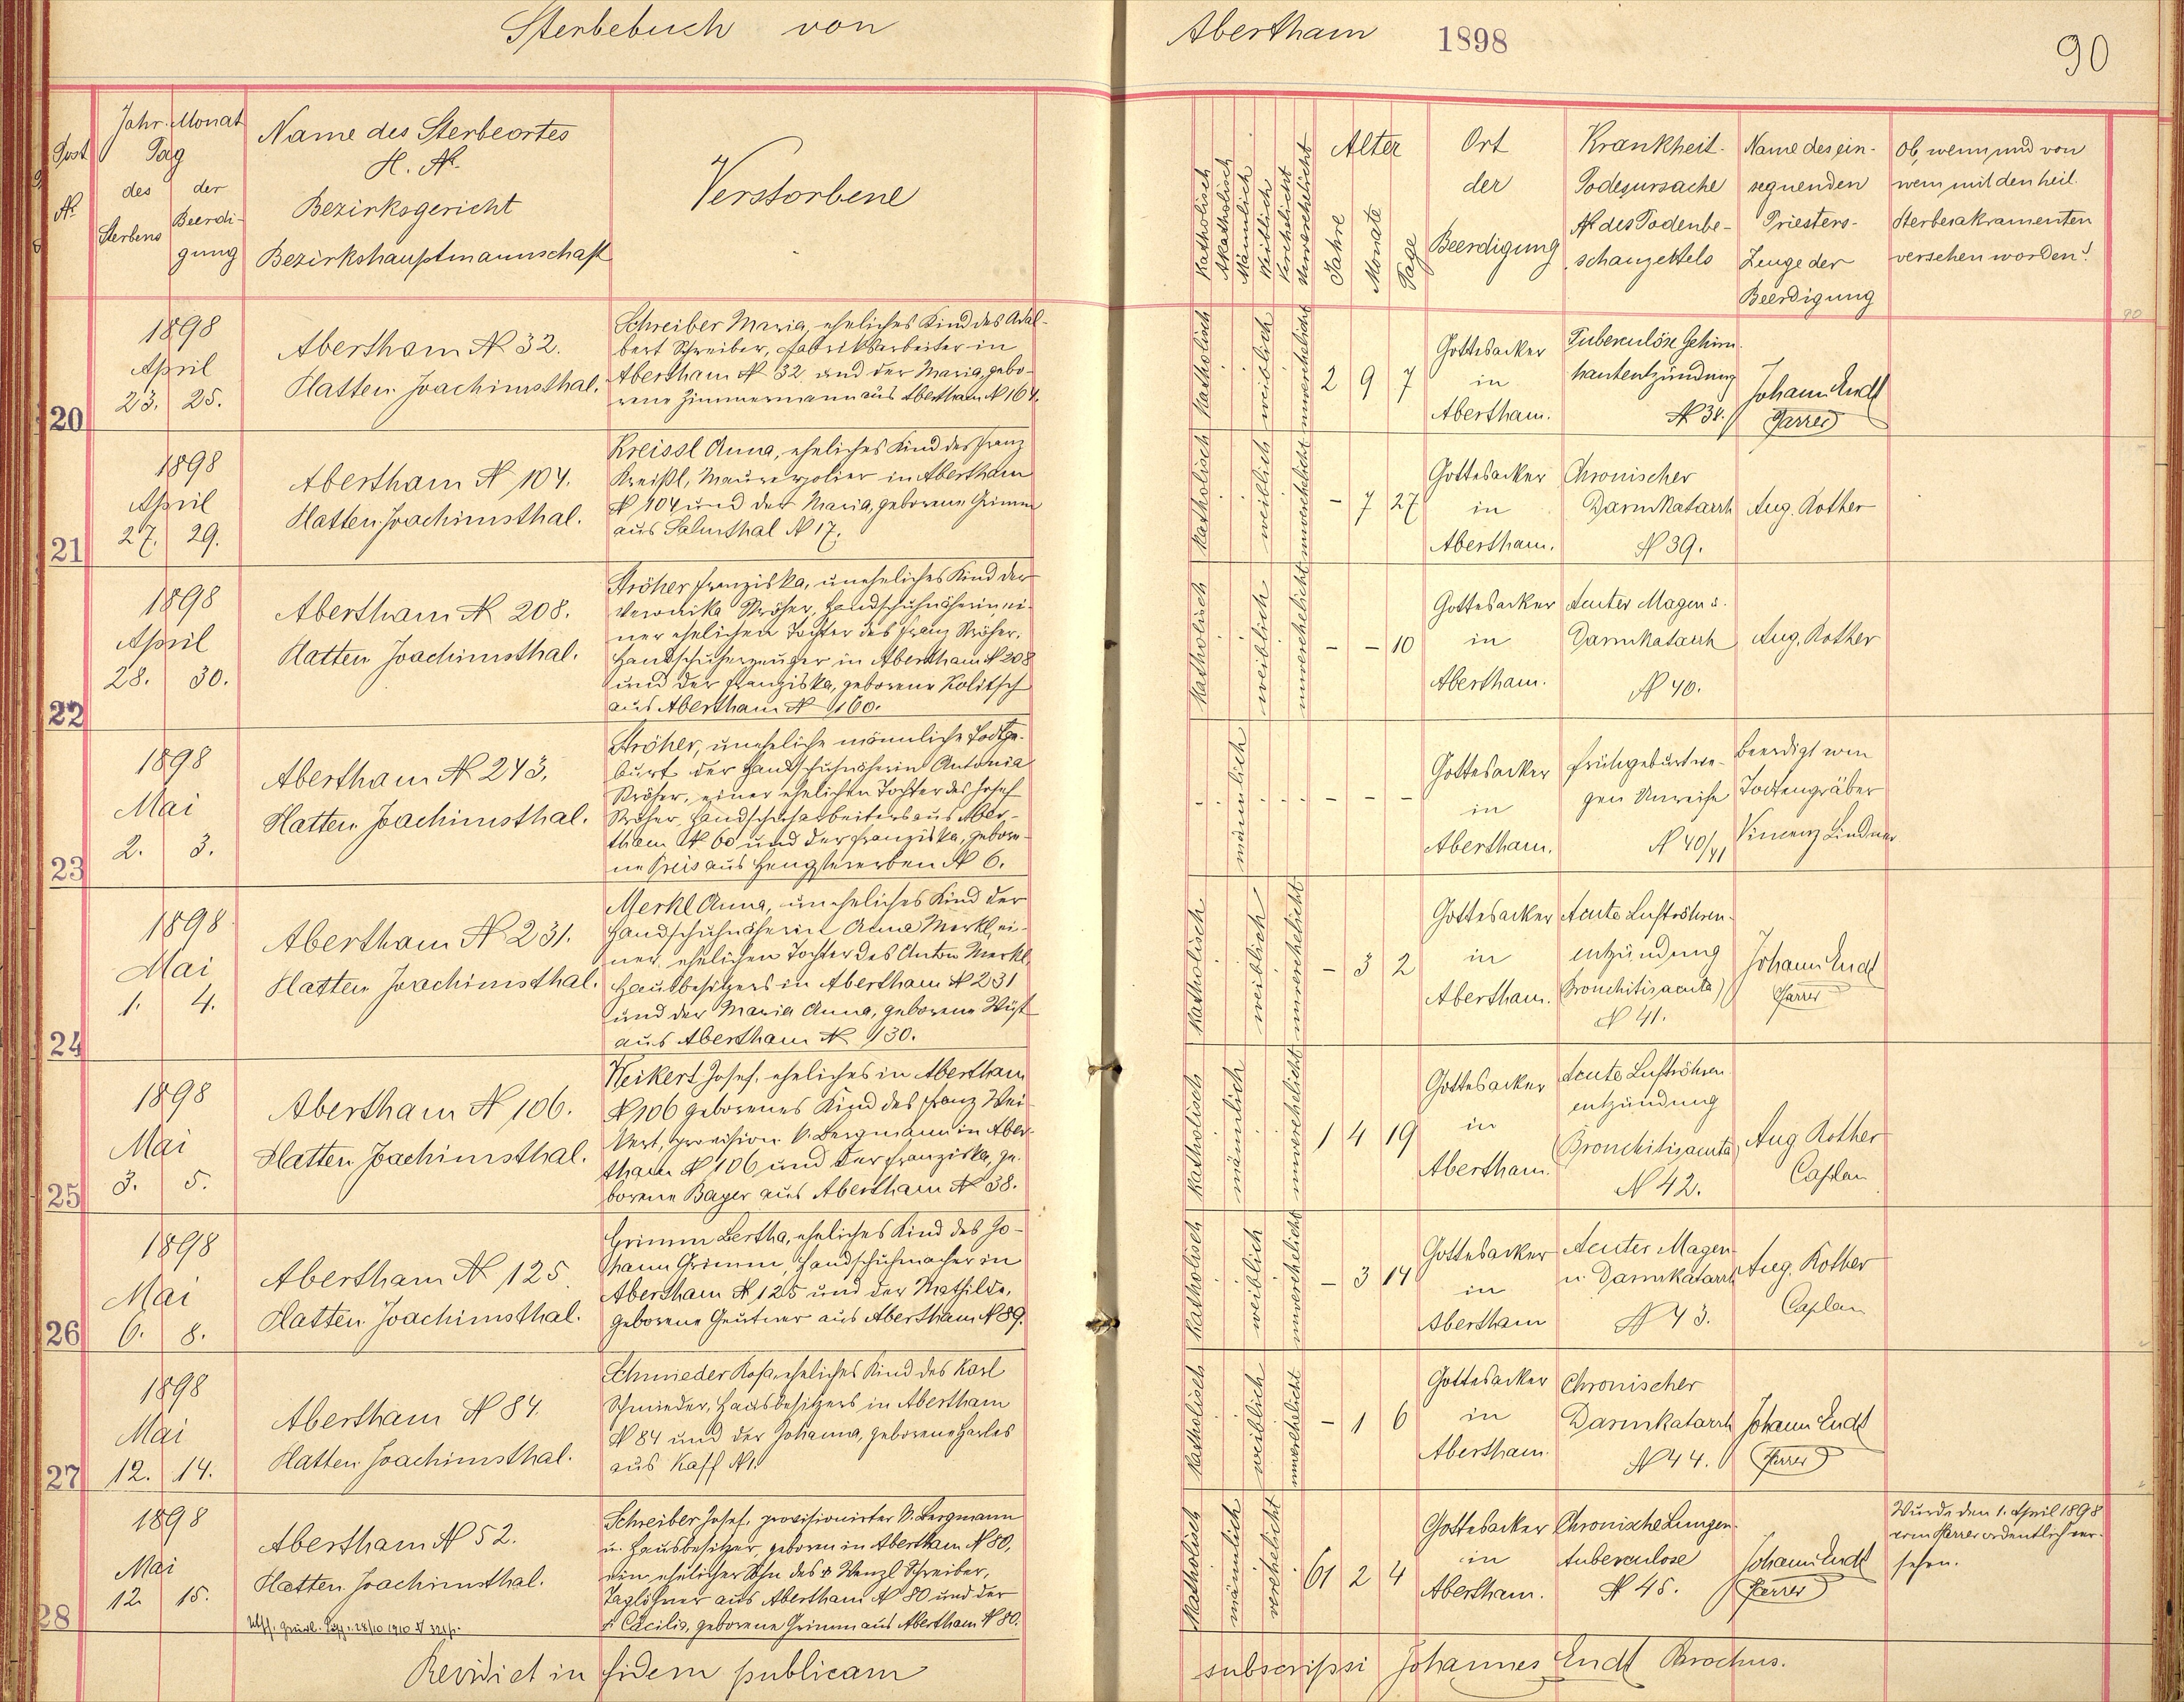 Sterbebuch von Abertham 1898 90
Post
№
Jahr. Monat
Tag
des
Sterbens
der
Beerdi-
gung
Name des Sterbeortes
H. №.
Bezirksgericht
Bezirkshauptmannschaft
Verstorbene
Katholisch
Akatholisch
Männlich
Weiblich
Verehelicht
Unverehelicht
Alter
Jahre
Monate
Tage
Ort
der
Beerdigung
Krankheit-
Todesursache
№ des Todenbe-
schauzettels
Name des ein-
segnenden
Priesters-
Zeuge der
Beerdigung
Ob, wenn und von
wem mit den heil.
Sterbesakramenten
versehen worden?
20
1898
April
23. 25.
Abertham № 32.
Platten Joachimsthal.
Schreiber Maria, eheliches Kind des Adal-
bert Schreiber, Fabriksarbeiter in
Abertham № 32 und der Maria, gebo-
rene Zimmermann aus Abertham № 164.
Katholisch
weiblich
unverehelicht
2 9 7
Gottesacker
in
Abertham.
Tuberculöse Gehirn-
hautentzündung
№ 38.
Johann Endt
Pfarrer
21
1898
April
27. 29.
Abertham № 104.
Platten Joachimsthal.
Kreissl Anna, eheliches Kind des Franz
Kreißl, Maurerpolier in Abertham
№ 104 und der Maria, geborene Grimm
aus Salmthal № 17.
Katholisch
weiblich
unverehelicht
- 7 27
Gottesacker
in
Abertham.
Chronischer
Darmkatarrh
№ 39.
Aug. Rother
22
1898
April
28. 30.
Abertham № 208.
Platten Joachimsthal.
Ströher Franziska, uneheliches Kind der
Veronika Ströher, Handschuhnäherin ei-
ner ehelichen Tochter des Franz Ströher,
Handschuherzeuger in Abertham № 208
und der Franziska, geborene Kolitsch
aus Abertham № 160.
Katholisch
weiblich
unverehelicht
- - 10
Gottesacker
in
Abertham.
Acuter Magen u.
Darmkatarrh
№ 40.
Aug. Rother
23
1898
Mai
2. 3.
Abertham № 243.
Platten Joachimsthal.
Ströher, uneheliche männliche Todtge-
burt der Handschuhnäherin Antonia
Ströher, einer ehelichen Tochter des Josef
Ströher, Handschuharbeiters aus Aber-
tham № 60 und der Franziska, gebore-
ne Preis aus Hengstererben № 6.
männlich
- - -
Gottesacker
in
Abertham.
Frühgeburt we-
gen Unreife
№ 40/41
Beerdigt vom
Todtengräber
Vincenz Lindner
24
1898
Mai
1. 4.
Abertham № 231.
Platten Joachimsthal.
Merkl Anna, uneheliches Kind der
Handschuhnäherin Anna Merkl, ei-
ner ehelichen Tochter des Anton Merkl,
Hausbesitzers in Abertham № 231
und der Maria Anna, geborene Wüst
aus Abertham № 130.
Katholisch
weiblich
unverehelicht
- 3 2
Gottesacker
in
Abertham.
Acute Luftröhren-
entzündung
(Bronchitis acuta)
№ 41.
Johann Endt
Pfarrer
25
1898
Mai
3. 5.
Abertham № 106.
Platten Joachimsthal.
Weikert Josef, eheliches in Abertham
№ 106 geborenes Kind des Franz Wei-
kert, provision k. Bergmann in Aber-
tham № 106 und der Franziska, ge-
borene Bayer aus Abertham № 38.
Katholisch
männlich
unverehelicht
1 4 19
Gottesacker
in
Abertham.
Acute Luftröhren
entzündung
(Bronchitis acuta)
№ 42.
Aug Rother
Caplan
26
1898
Mai
6. 8.
Abertham № 125
Platten Joachimsthal.
Grimm Bertha, eheliches Kind des Jo-
hann Grimm, Handschuhmacher in
Abertham № 125 und der Mathilde,
geborene Geutner aus Abertham № 89.
Katholisch
weiblich
unverehelicht
- 3 14
Gottesacker
in
Abertham
Acuter Magen-
u. Darmkatarrh
№ 43.
Aug. Rother
Caplan
27
1898
Mai
12. 14.
Abertham № 84.
Platten Joachimsthal.
Schmieder Rosa, eheliches Kind des Karl
Schmieder, Hausbesitzers in Abertham
№ 84 und der Johanna, geborene Harles
aus Kaff № 1.
Katholisch
weiblich
unverehelicht
- 1 6
Gottesacker
in
Abertham.
Chronischer
Darmkatarrh
№ 44.
Johann Endt
Pfarrer
28
1898
Mai
12. 15.
Abertham № 52.
Platten Joachimsthal.
28/10 1910 № 321/1.
Schreiber Josef, provisionirter k. Bergmann
u. Hausbesitzer, geboren in Abertham № 80,
ein ehelicher Sohn des † Wenzl Schreiber,
Taglöhner aus Abertham № 80 und der
† Cäcilia, geborene Grimm aus Abertham № 80.
Katholisch
männlich
verehelicht
61 2 4
Gottesacker
in
Abertham.
Chronische Lungen-
tuberculose
№ 45.
Johann Endt
Pfarrer
Wurde den 1. April 1898
vom Pfarrer ordentlich ver-
sehen.
Revidi et in fidem publicam subscripsi Johannes Endt Parochus.